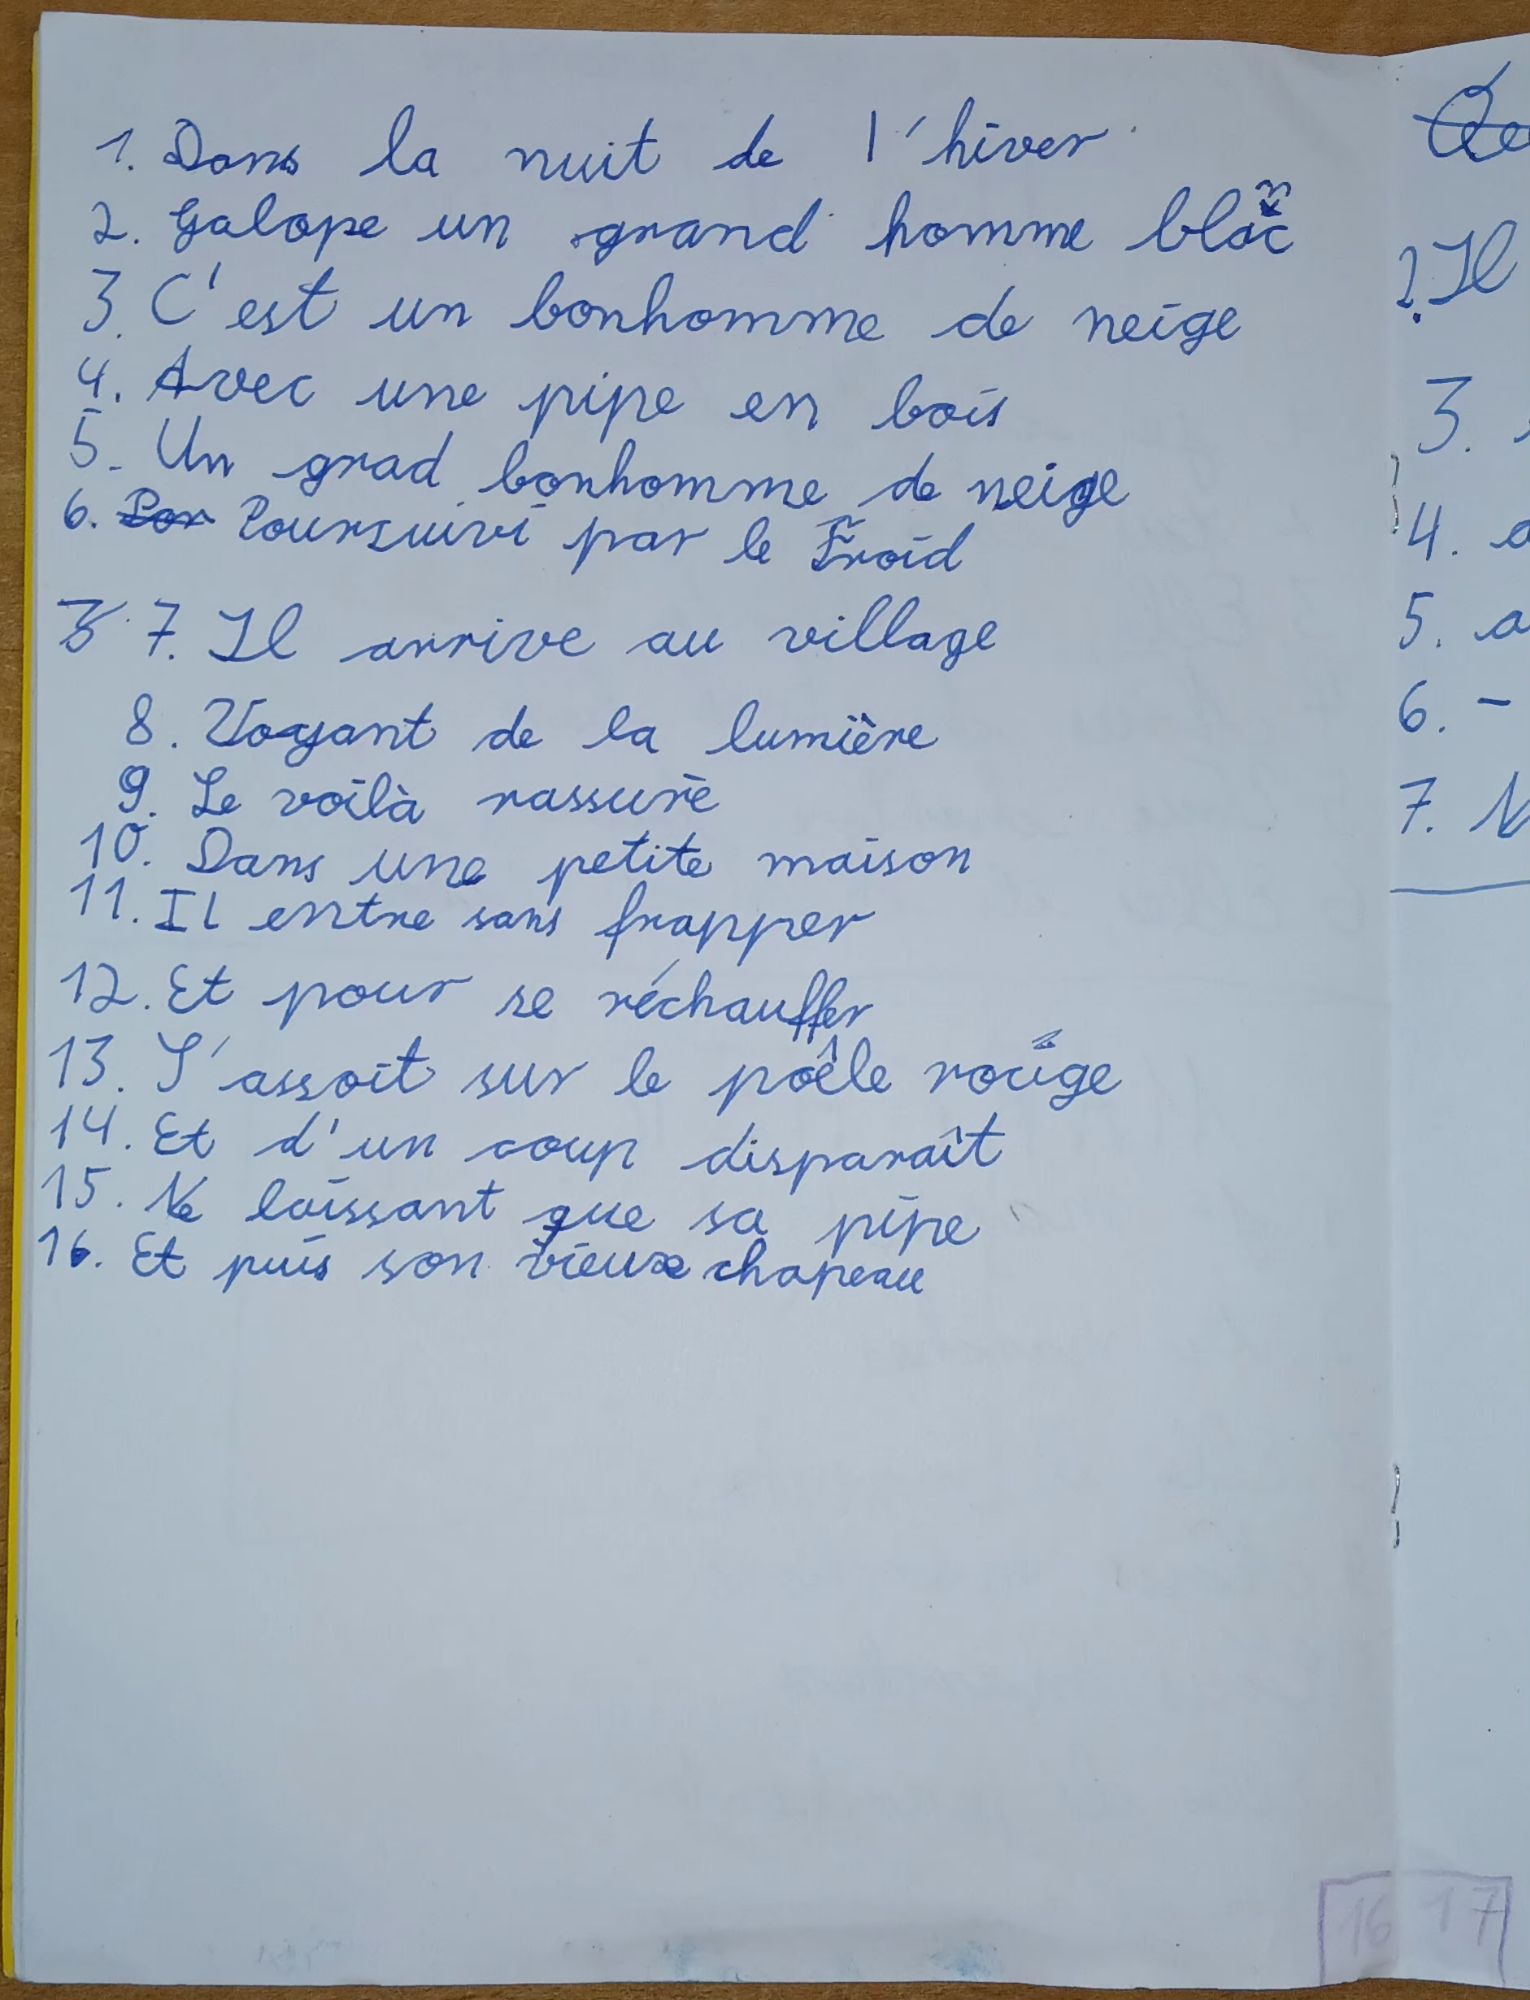 1. Dans la nuit de l'hiver
2. Galope un grand homme blanc
3. C'est un bonhomme de neige
4. Avec une pipe en bois
5. Un grad bonhomme de neige
6. Poursuivi par le Froid
7. Il arrive au village
8. Voyant de la lumière
9. Le voilà rassuré
10. Dans une petite maison
11. Il entre sans frapper
12. Et pour se réchauffer
13. S'assoit sur le poêle rouge
14. Et d'un coup disparaît
15. Ne laissant que sa pipe
16. Et puis son vieux chapeau
2. Il
3.
4. a
5. a
6. -
7. N
16 17